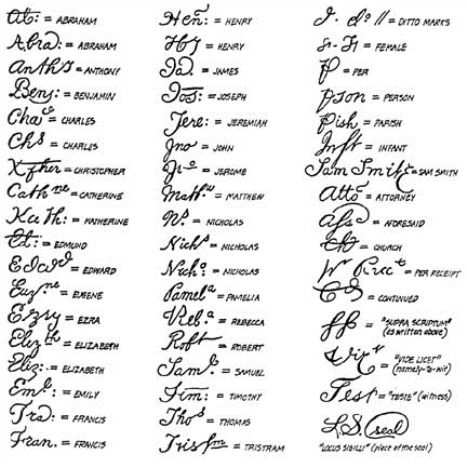 Ab: = ABRAHAM
Abra: = ABRAHAM
Anthº = ANTHONY
Benj: = BENJAMIN
Chaˢ = CHARLES
Chˢ = CHARLES
Xpher = CHRISTOPHER
Cathⁿᵉ = CATHERINE
Kath: = KATHERINE
Ed: = EDMUND
Edwᵈ = EDWARD
Eugⁿᵉ = EUGENE
Ezry = EZRA
Elizᵗʰ = ELIZABETH
Eliz: = ELIZABETH
Emˡ: = EMILY
Fra: = FRANCIS
Fran. = FRANCIS
Henͬ: = HENRY
Hy = HENRY
Ja: = JAMES
Jos: = JOSEPH
Jere: = JEREMIAH
Jno = JOHN
Jrᵒ = JEROME
Mathʷ = MATTHEW
Nˢ = NICHOLAS
Nichˢ = NICHOLAS
Nich: = NICHOLAS
Pamelᵃ = PAMELIA
Reb.ᵃ = REBECCA
Robt = ROBERT
Sam.ˡ = SAMUEL
Tim: = TIMOTHY
Thoˢ = THOMAS
Trisᵐ = TRISTRAM
do // = DITTO MARKS
= FEMALE
P = PER
pson = PERSON
pish = PARISH
Inft = INFANT
Sam Smith = SAM SMITH
Attoʳ = ATTORNEY
afsᵈ = AFORESAID
Ch = CHURCH
Pʳ Recᵗ = PER RECEIPT
= CONTINUED
ff = "SUPRA SCRIPTUM" (as written above)
Vizᵗ = "VIDE LICET" (namely-to-wit)
Test = "TESTE" (witness)
L.S. seal
"LOCUS SIGILLI" (place of the seal)